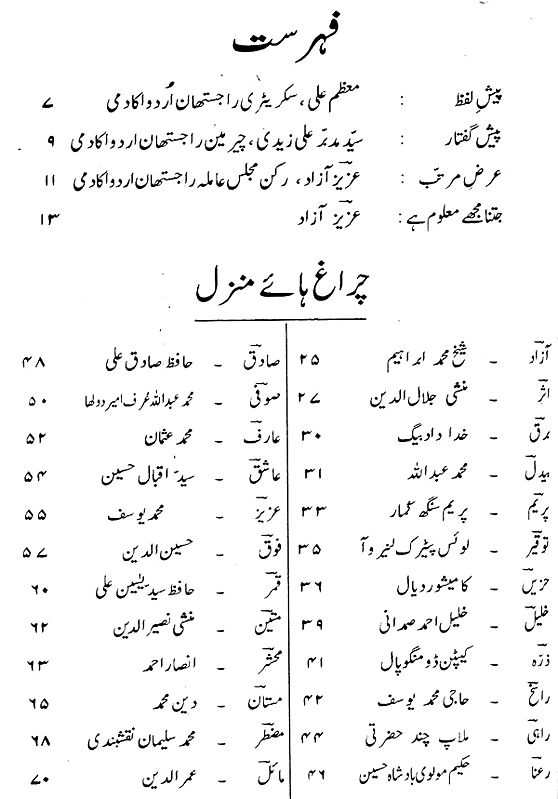 فہرست
پیش لفظ : معظم علی، سکریٹری راجستھان اُردو اکادمی ۷
پیش گفتار : سیّد مدبّر علی زیدی، چیرمین راجستھان اردو اکادمی ۹
عرضِ مرتب : عزیز آزاد، رکن مجلس عاملہ راجستھان اردو اکادمی ۱۱
جتنا مجھے معلوم ہے : عزیز آزاد ۱۳
چراغ ہائے منزل
آزاد - شیخ محمد ابراہیم ۲۵
اثر - منشی جلال الدین ۲۷
برق - خداداد بیگ ۳۰
بیدل - محمد عبداللہ ۳۱
پریم - پریم سنگھ کمار ۳۳
توقیر - لوئس پیٹرک لنیروآ ۳۵
حزیں - کامیشور دیال ۳۶
خلیل - خلیل احمد صمدانی ۳۹
ذرّہ - کیپٹن ڈومنگوپال ۴۱
رائخ - حاجی محمد یوسف ۴۲
راہی - ملاپ چند حضرتی ۴۴
رعنا - حکیم مولوی بادشاہ حسین ۴۶
صادق - حافظ صادق علی ۴۸
صوفی - محمد عبداللہ عُرف امیر دولھا ۵۰
عارف - محمد عثمان ۵۲
عاشق - سیّد اقبال حسین ۵۴
عزیز - محمد یوسف ۵۵
فوق - حسین الدین ۵۷
قمر - حافظ سید یٰسین علی ۶۰
متین - منشی نصیر الدین ۶۲
محشر - انصار احمد ۶۳
مستان - دین محمد ۶۵
مضطر - محمد سلیمان نقشبندی ۶۸
مائل - عمر الدین ۷۰